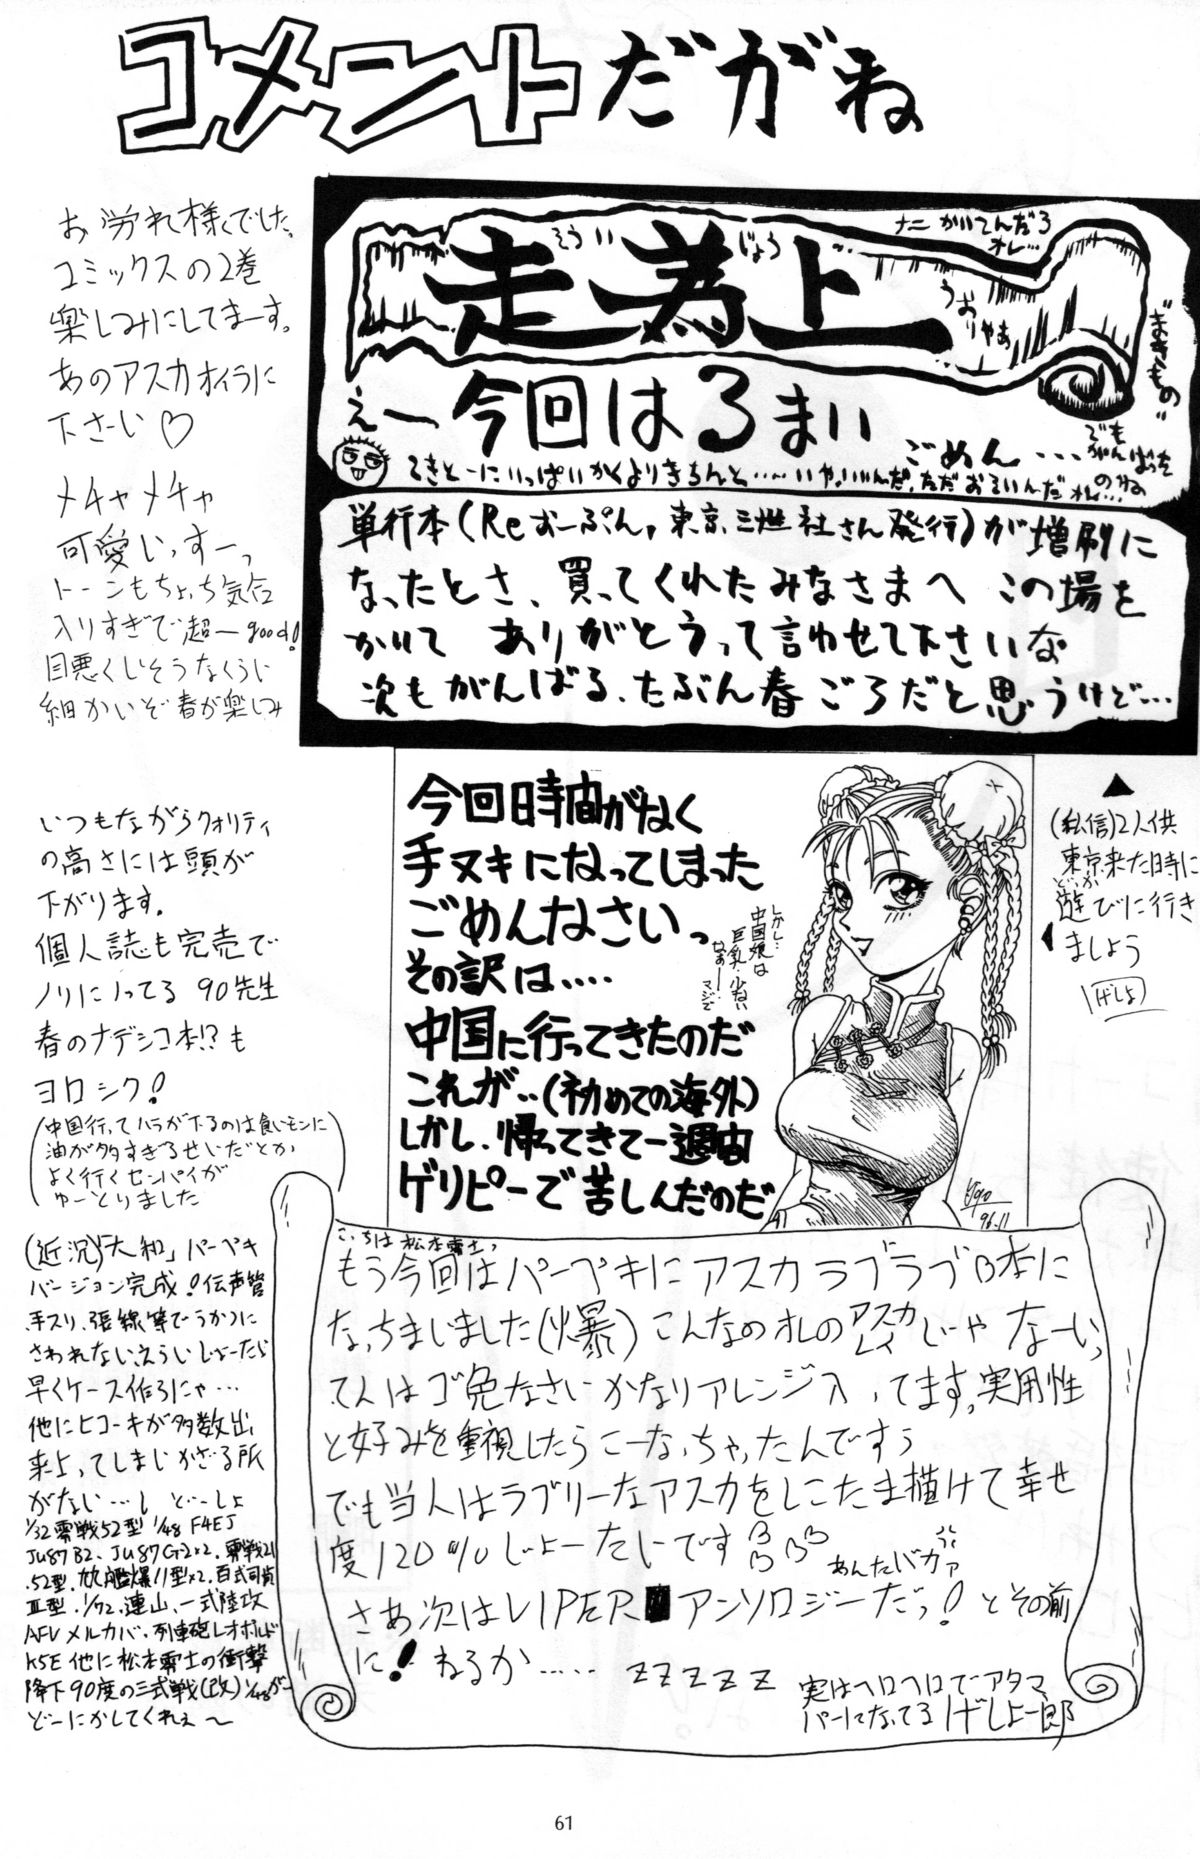 コメントだがね
お労れ様でした。
コミックスの2巻
楽しみにしてまーす。
あのアスカオイラに
下さーい♡
メチャメチャ
可愛いっすーっ
トーンもちょっち気合
入りすぎで超ーgood!
目悪くしそうなくらい
細かいぞ春が楽しみ
走為上
そうい じょう
ナニかいてんだろ
オレ…
うおりゃあ
"まきもの"
えー今回はるまい
ごめん…
でも
がんばった
のね
てきとーにいっぱいかくよりきちんと……いや、いいんだ、ただおそいんだオレ…
単行本(Reおーぷん,東京三世社さん発行)が増刷に
なったとさ、買ってくれたみなさまへ この場を
かりて ありがとうって言わせて下さいな
次もがんばる、たぶん春ごろだと思うけど…
今回時間がなく
手ヌキになってしまった
ごめんなさいっ
その訳は……
中国に行ってきたのだ
これが‥(初めての海外)
しかし、帰ってきて一週間
ゲリピーで苦しんだのだ
しかし…
中国娘は
巨乳少ない
なぁー…
マジで
96.11
▲
(私信)2人供
東京来た時に
どっか
遊びに行き
ましょう
げしょ
いつもながらクオリティ
の高さには頭が
下がります。
個人誌も完売で
ノリにノってる 90先生
春のナデシコ本!?も
ヨロシク!
(中国行ってハラが下るのは食いモンに
油が多すぎるせいだとか
よく行くセンパイが
ゆーとりました)
(近況)「大和」パーペキ
バージョン完成!伝声管
手スリ、張線等でうかつに
さわれない、えらいしょーたら
早くケース作ろにゃ…
他にヒコーキが多数出
来上ってしまいかざる所
がない…し どーしよ
1/32零戦52型 1/48 F4EJ
JU87B2、JU87G2×2、零戦21
.52型、九九艦爆11型×2、百式司偵
Ⅲ型、1/72、連山、一式陸攻
AFV メルカバ、列車砲レオポルド
K5E 他に松本零士の衝撃
降下90度の三式戦(改)1/48がー
どーにかしてくれぇ〜
こっちは松本零士っ
もう今回はパーペキにアスカラブラブ♡本に
なっちまいました(爆)こんなのオレのアスカ
レイじゃなーいっ
て人はゴ免なさいかなりアレンジ入ってます。実用性
と好みを重視したらこーなっちゃったんですぅ
でも当人はラブリーなアスカをしこたま描けて幸せ
度120%じょーたいです♡♡♡♡
あんたバカァ
さあ次はVIPERアンソロジーだっ!とその前
に!ねるか…… zzzzz
実はヘロヘロでアタマ
パーになってる げしょ一郎
61